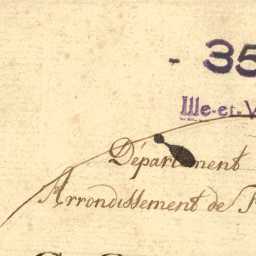 - 35
Ille-et-V
Département
Arrondissement de